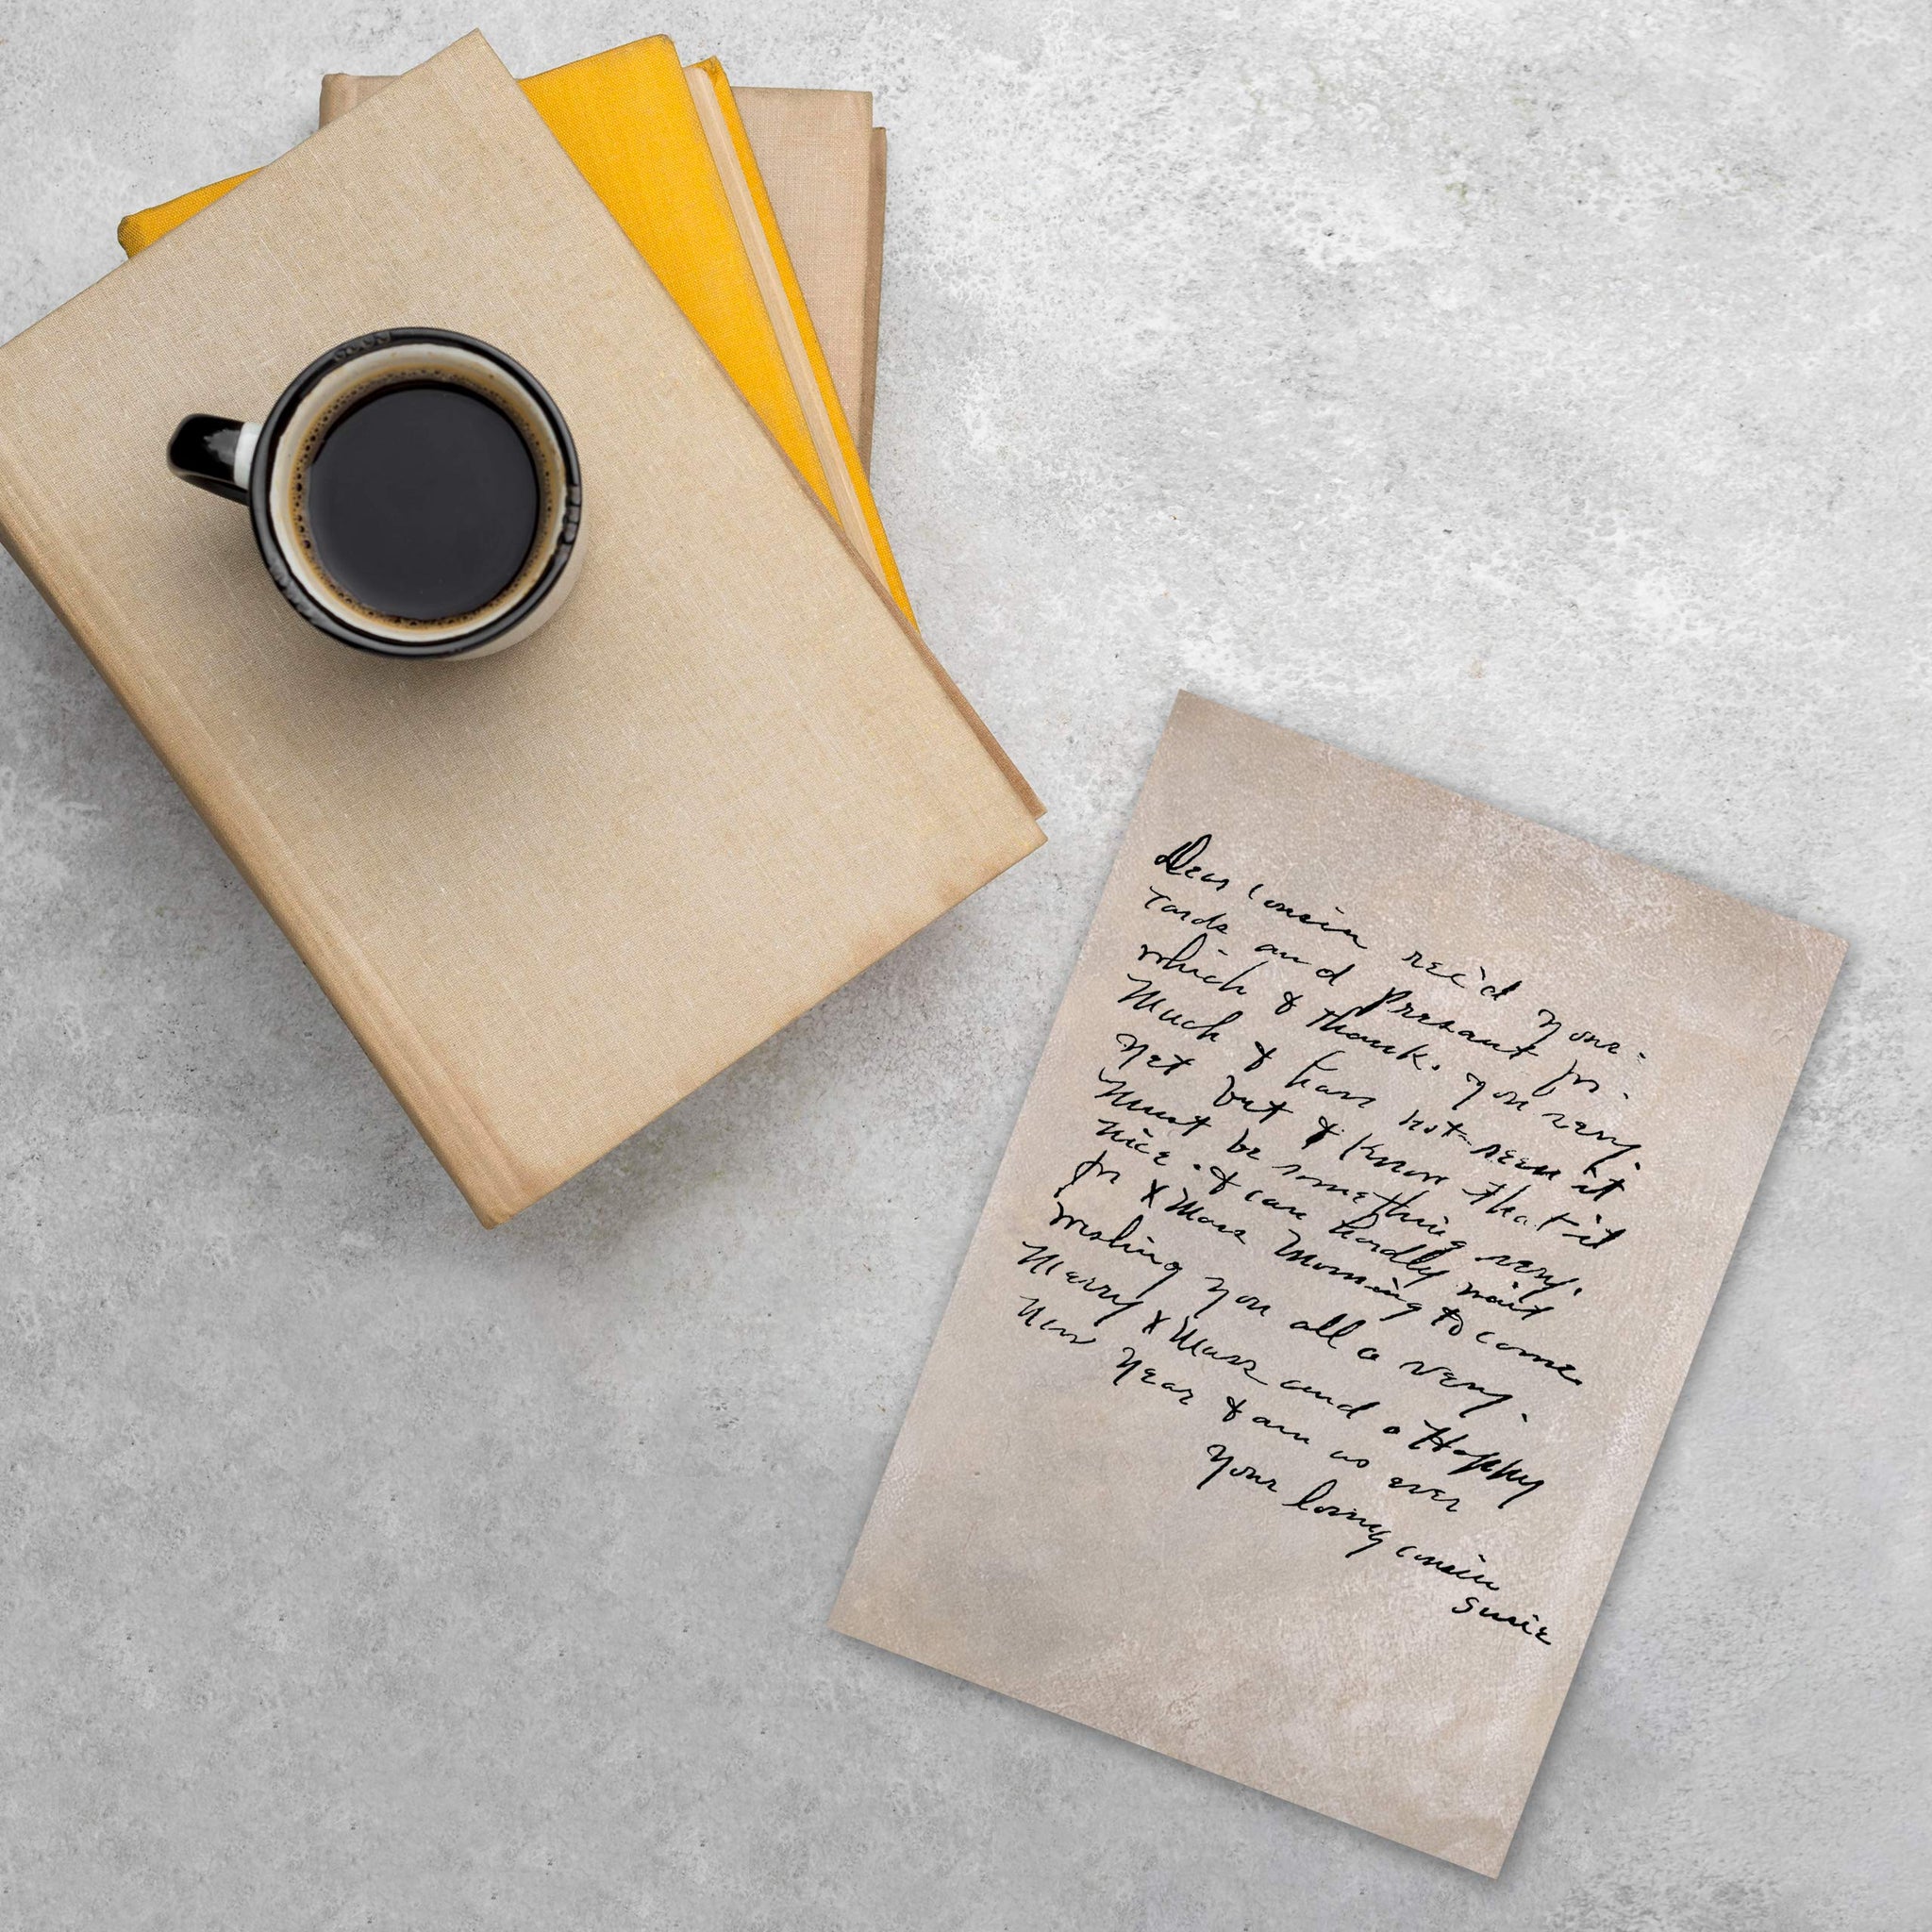 Dear Cousin rec'd your
Cards and Presant for
which I thank you very
Much I have not seen it
yet but I know that it
Must be something very
nice. I can hardly wait
for XMass Morning to come.
wishing you all a very
Merry XMass and a Happy
New Year I am as ever
Your loving cousin
Susie